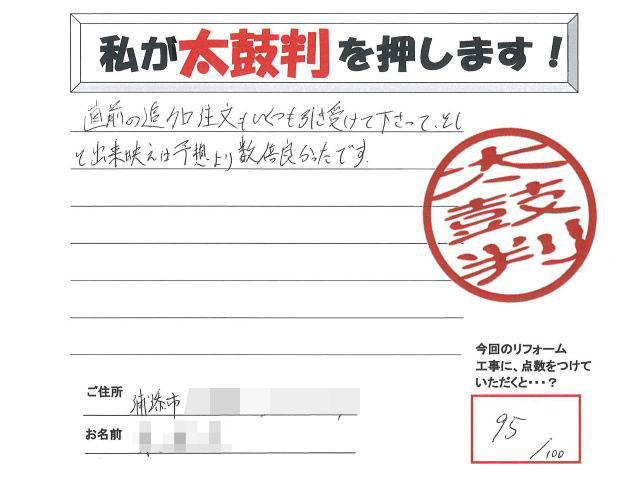 私が太鼓判を押します!
直前の追加注文もいくつも引き受けて下さって、そし
て出来映えは予想より数倍良かったです。
太
鼓
判
今回のリフォーム
工事に、点数をつけて
いただくと・・・?
ご住所 浦添市
お名前
95/100